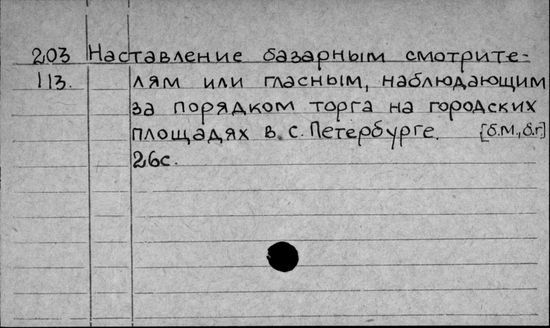 203 Наставление базарным смотрите-
113. лям или гласным, наблюдающим
за порядком торга на городских
площадях в с. Петербурге. [б.м., б.г]
26с.